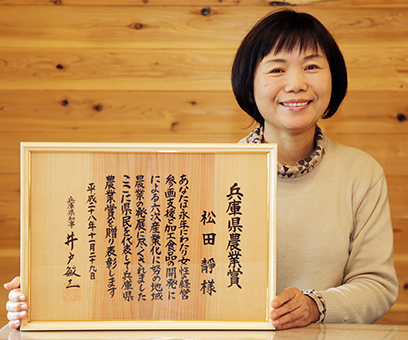 兵庫県農業賞
松田靜様
あなたは永年にわたり女性の経営
参画支援と加工食品の開発に
よる六次産業化に努め地域
農業の発展に尽くされました
ここに県民を代表して兵庫県
農業賞を贈り表彰します
平成二十八年十一月二十九日
兵庫県知事 井戸敏三